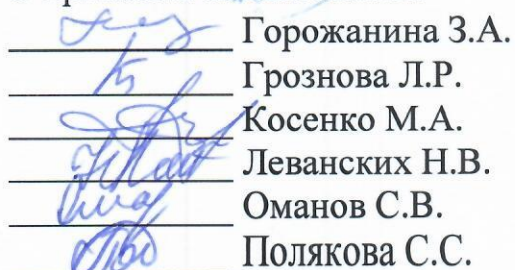 Горожанина З.А.
Грознова Л.Р.
Косенко М.А.
Леванских Н.В.
Оманов С.В.
Полякова С.С.